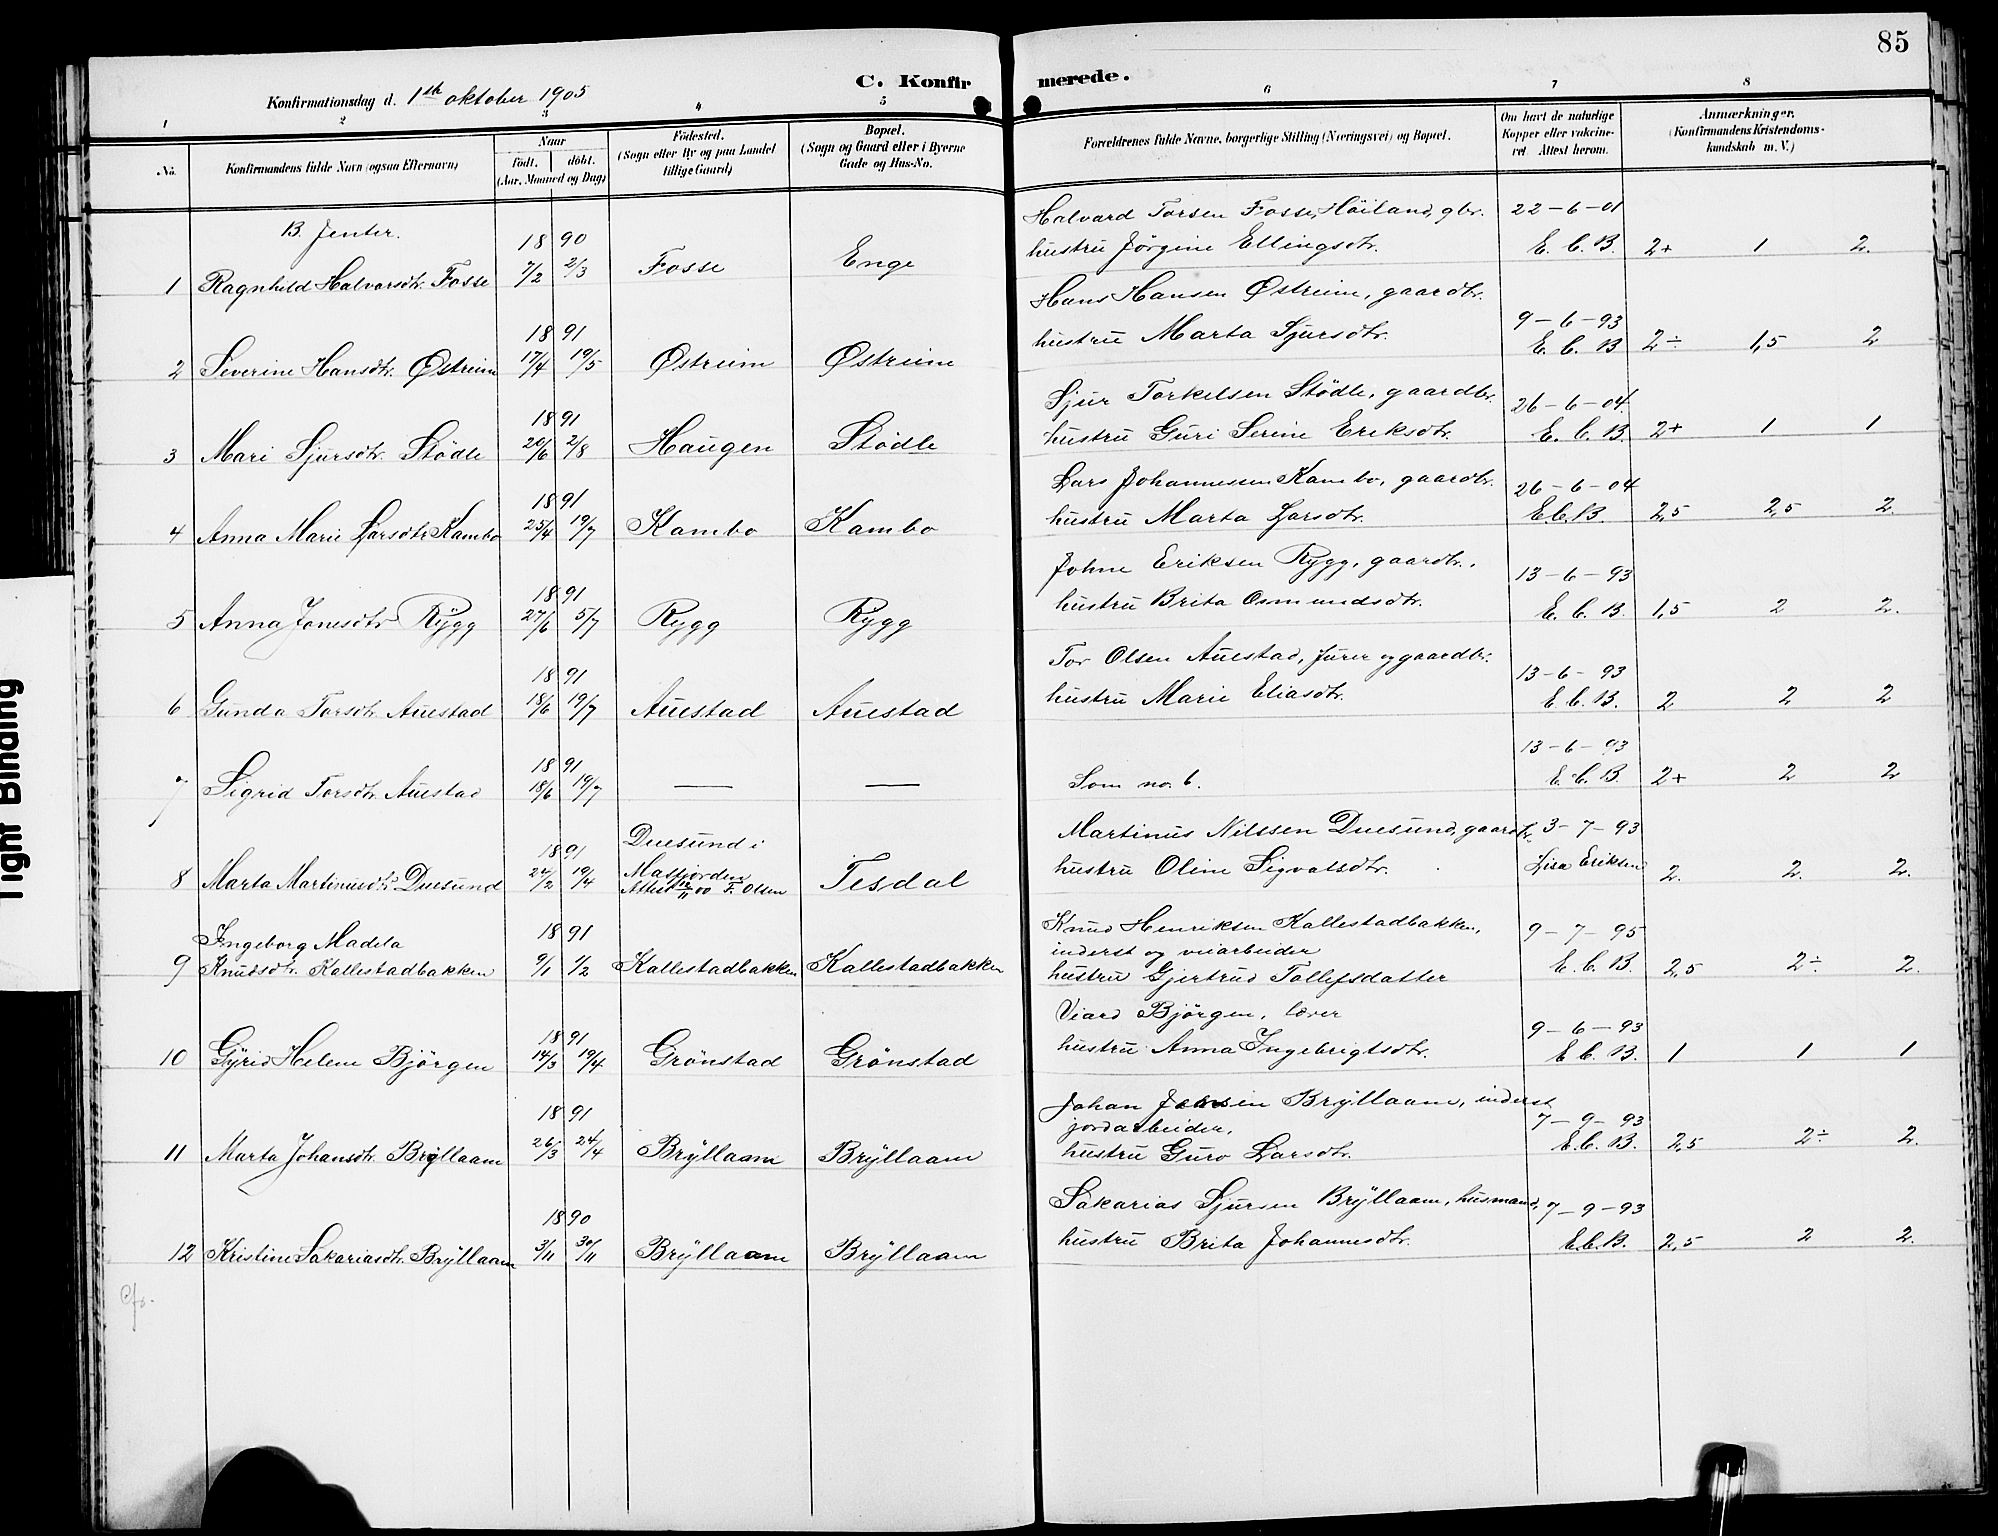 85
C. Konfirmerede.
Konfirmationsdag d. 1ste oktober 1905
1 2 3 4 5 6 7 8
No.
Konfirmandens fulde Navn (ogsaa Efternavn)
Naar
født. døbt.
(Aar, Maaned og Dag)
Fødested.
(Sogn eller By og paa Landet
tillige Gaard)
Bopæl.
(Sogn og Gaard eller i Byerne
Gade og Hus-No.
Forældrenes fulde Navne, borgerlige Stilling (Næringsvei) og Bopæl.
Om havt de naturlige
Kopper eller vakcine-
ret. Attest herom.
Anmærkninger.
(Konfirmandens Kristendoms-
kundskab m. V.)
B. Jenter.
1 Ragnhild Halvorsdtr. Fosse 1890 7/2 2/3 Fosse Enge
Halvard Torsen Fosse, Høiland, gbr. 22-6-01
hustru Jørgine Ellingsdtr. E. C. B. 2+ 1 2.
2 Severine Hansdtr. Østreim 1891 17/4 19/5 Østreim Østreim
Hans Hansen Østreim, gaardbr. 9-6-93
hustru Marta Sjursdtr. E. C. B 2÷ 1,5 2
3 Mari Sjursdtr. Stødle 1891 20/6 2/8 Haugen Stødle
Sjur Torkelsen Stødle, gaardbr. 26-6-04
hustru Guri Serine Eriksdtr. E. C. B. 2+ 1 1
4 Anna Marie Larsdtr. Kambo 1891 25/4 19/7 Kambo Kambo
Lars Johannessen Kambo, gaardbr. 26-6-04
hustru Marta Larsdtr. E. C. B. 2,5 2,5 2.
5 Anna Jonesdtr. Rygg 1891 27/6 5/7 Rygg Rygg
Johne Eriksen Rygg, gaardbr. 13-6-93
hustru Brita Osmundsdtr. E. C. B. 1,5 2 2.
6 Gunda Torsdtr. Auestad 1891 18/6 19/7 Auestad Auestad
Tor Olsen Auestad, furer og gaardbr. 13-6-93
hustru Marie Eliasdtr. E. C. B. 2 2 2
7 Sigrid Torsdtr. Auestad 1891 18/6 19/7 — —
Som no. 6. 13-6-93 E. C. B. 2+ 2 2
8 Marta Martinusdtr. Duesund 1891 24/2 19/4 Duesund i
Masfjorden
Attest 12/11 00 F. Olsen Tesdal
Martinus Nilssen Duesund, gaardbr. 3-7-93
hustru Oline Sigvatsdtr. Lisa Eriksen 2. 2. 2.
9 Ingeborg Madela
Knudsdtr. Kallestadbakken 1891 9/1 1/2 Kallestadbakken Kallestadbakken
Knud Henriksen Kallestadbakken, 9-7-95
inderst og veiarbeider
hustru Gjertrud Tollefsdatter E. C. B. 2,5 2÷ 2.
10 Gyrid Helene Bjørgen 1891 14/3 19/4 Grønstad Grønstad
Viard Bjørgen, lærer 9-6-93
hustru Anna Ingebrigtsdtr. E. C. B. 1 1 1
11 Marta Johansdtr. Bryllaam 1891 26/3 24/4 Bryllaam Bryllaam
Johan Jansen Bryllaam, inderst
jordarbeider, 7-9-93
hustru Guro Larsdtr. E. C. B. 2,5 2÷ 2.
12 Kristine Sakariasdtr. Bryllaam 1890 3/11 30/11 Bryllaam Bryllaam
Sakarias Sjursen Bryllaam, husmand, 7-9-93
hustru Brita Johannesdtr. E. C. B. 2,5 2 2.
Cfr.
Tight Binding